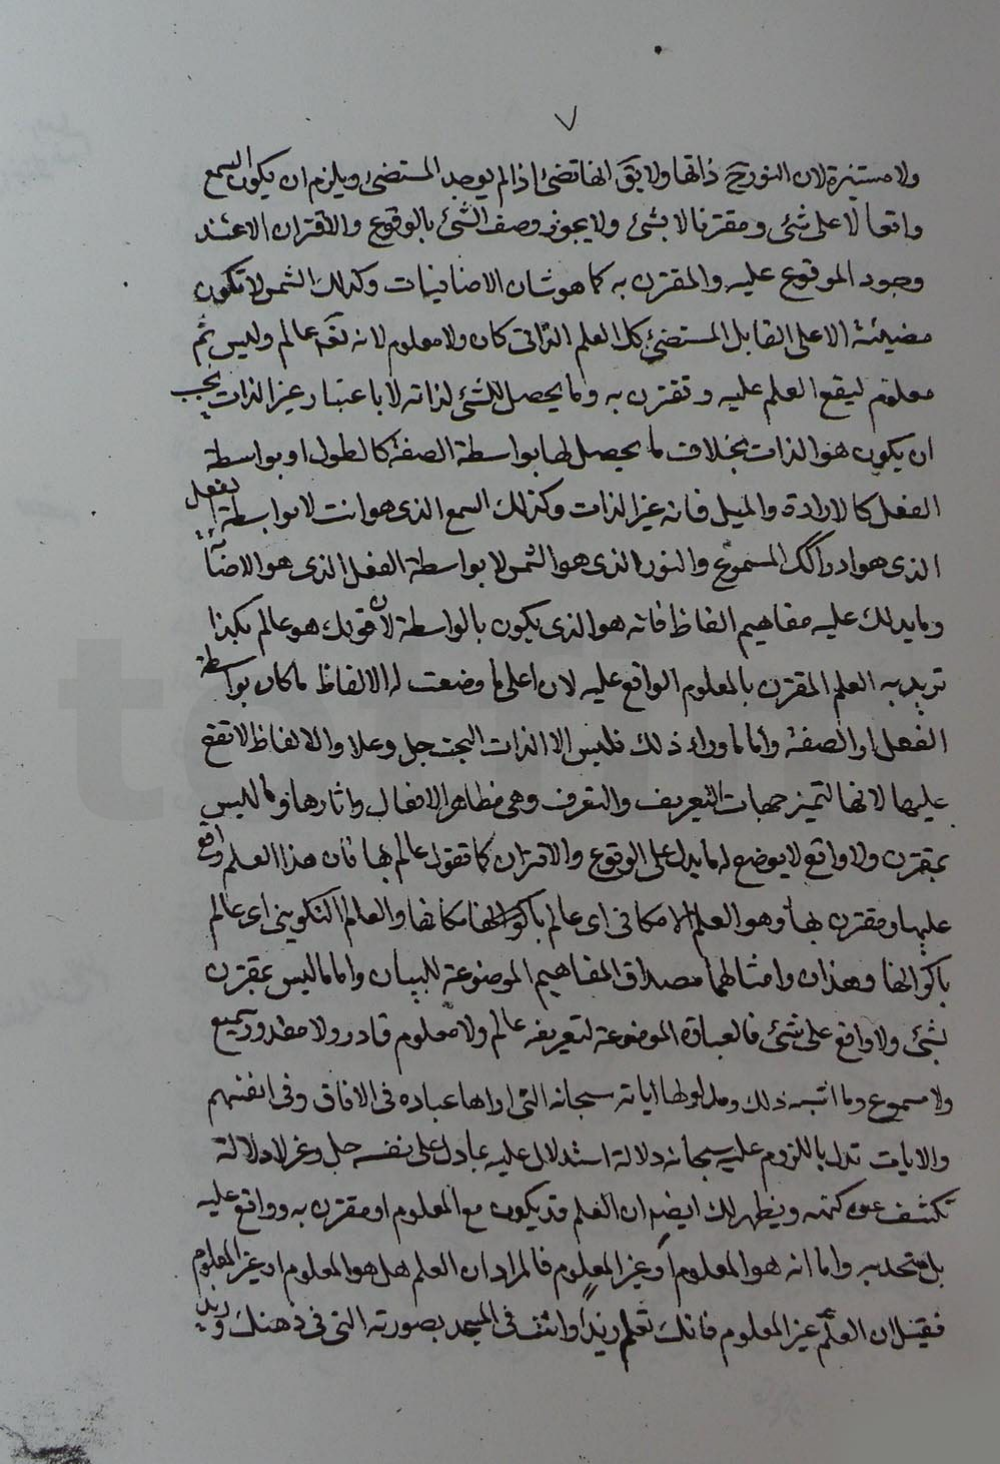 ٧
ولا مستنيرة لان النور ح ذاتها ولا يق انها تضئ اذا لم يوجد المستضئ ويلزم ان يكون السمع
واقعا لا على شئ ومقترنا لا بشئ ولا يجوز وصف الشئ بالوقوع والاقتران الا عند
وجود الموقوع عليه والمقترن به كما هو شان الاضافيات وكذلك الشمس لا تكون
مضيئة الا على القابل المستضئ كل العلم الذاتى كان ولا معلوم لانه ثمة عالم وليس ثم
معلوم ليقع العلم عليه وتقترن به وما يحصل للشئ لذاته لا باعتبار غير الذات يجب
ان يكون هو الذات بخلاف ما يحصل لها بواسطة الصفة كالطول او بواسطة
الفعل كالارادة والميل فانه غير الذات وكذلك السمع الذى هو انت لا بواسطة الفعل
الذى هو ادراكك المسموع والنور الذى هو الشمس لا بواسطة الفعل الذى هو الاضائة
وما يدلك عليه مفاهيم الفاظ فانه هو الذى يكون بالواسطة لان قولك هو عالم بكذا
تريد به العلم المقترن بالمعلوم الواقع عليه لان اعلى ما وضعت له الالفاظ ما كان بواسطة
الفعل او الصفة واما ما وراء ذلك فليس الا الذات البحت جل وعلا والالفاظ لا تقع
عليها لانها لتميز جهات التعريف والتعرف وهى مظاهر الافعال واثارها وما ليس
بمقترن ولا واقع لا يوضع له ما يدل على الوقوع والاقتران كما تقول عالم بها فان هذا العلم واقع
عليها ومقترن بها وهو العلم الامكانى اى عالم باكوانها مكانها والعالم التكوينى اى عالم
باكوانها وهذان وامثالهما مصداق المفاهيم الموضوعة للبيان واما ما ليس بمقترن
بشئ ولا واقع على شئ فالعبارة الموضوعة لتعريفه عالم ولا معلوم قادر ولا مقدور سميع
ولا مسموع وما اشبه ذلك ومدلولها اياته سبحانه التى اراها عباده فى الافاق وفى انفسهم
والايات تدل باللزوم عليه سبحانه دلالة استدلال عليه بما دل على نفسه جل وعز لا دلالة
تكشف عن كنهه ويظهر لك ايضا ان العلم قد يكون مع المعلوم او مقترن به وواقع عليه
بل متحد به واما انه هو المعلوم او غير المعلوم فالمراد ان العلم هل هو المعلوم ام غير المعلوم
فقيل ان العلم غير المعلوم فانك تعلم زيدا وانت فى المسجد بصورته التى فى ذهنك وزيد